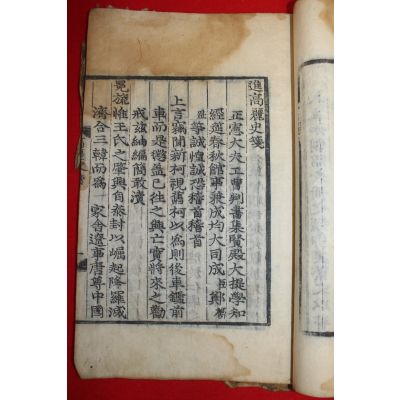 進高麗史箋
正憲大夫工曹判書集賢殿大提學知
經筵春秋館事兼成均大司成臣鄭麟
趾等誠惶誠恐稽首稽首
上言竊聞新柯視舊柯以爲則後車鑑前
車而是懲盖已往之興亡實將來之勸
戒玆紬編簡敢瀆
冕旒惟王氏之肇興自泰封以崛起降羅滅
濟合三韓而爲一家舍遼事唐尊中國